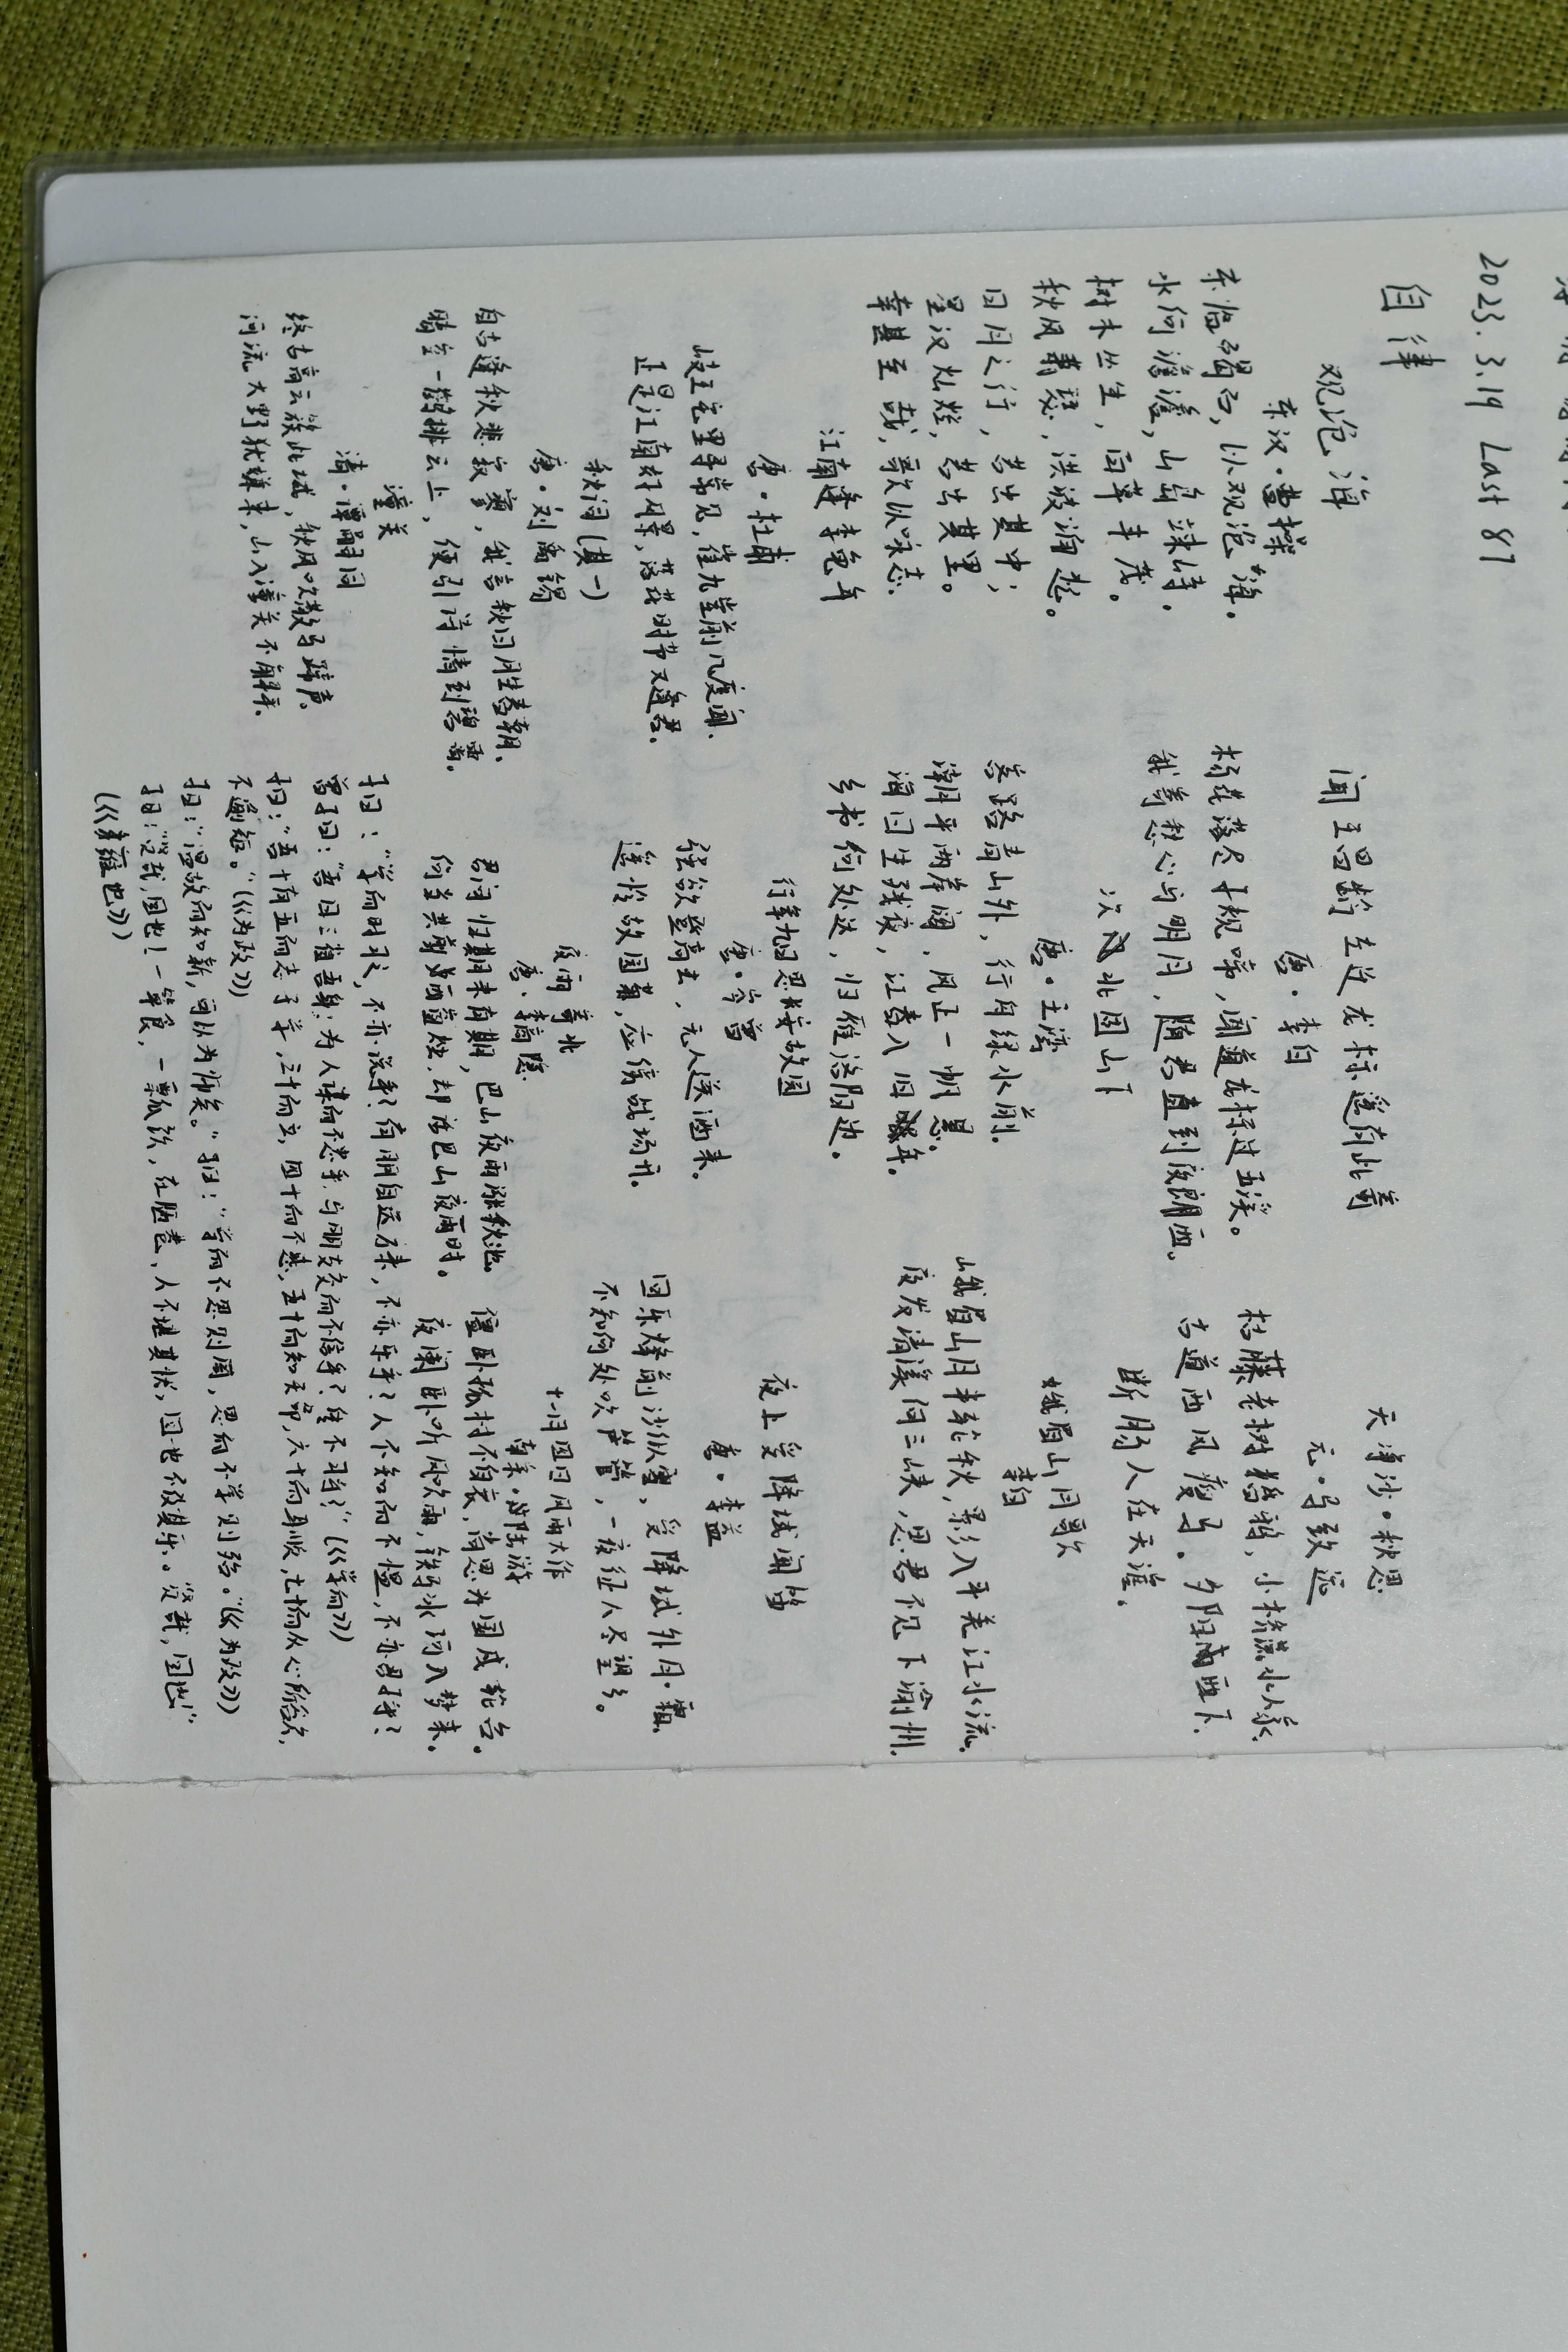 2023.3.19 Last 87
自律
观沧海
东汉·曹操
东临碣石，以观沧海。
水何澹澹，山岛竦峙。
树木丛生，百草丰茂。
秋风萧瑟，洪波涌起。
日月之行，若出其中；
星汉灿烂，若出其里。
幸甚至哉，歌以咏志。
江南逢李龟年
唐·杜甫
岐王宅里寻常见，崔九堂前几度闻。
正是江南好风景，落花时节又逢君。
秋词（其一）
唐·刘禹锡
自古逢秋悲寂寥，我言秋日胜春朝。
晴空一鹤排云上，便引诗情到碧霄。
潼关
清·谭嗣同
终古高云簇此城，秋风吹散马蹄声。
河流大野犹嫌束，山入潼关不解平。
闻王昌龄左迁龙标遥有此寄
唐·李白
杨花落尽子规啼，闻道龙标过五溪。
我寄愁心与明月，随君直到夜郎西。
次北固山下
唐·王湾
客路青山外，行舟绿水前。
潮平两岸阔，风正一帆悬。
海日生残夜，江春入旧年。
乡书何处达，归雁洛阳边。
行军九日思长安故园
唐·岑参
强欲登高去，无人送酒来。
遥怜故园菊，应傍战场开。
夜雨寄北
唐·李商隐
君问归期未有期，巴山夜雨涨秋池。
何当共剪西窗烛，却话巴山夜雨时。
天净沙·秋思
元·马致远
枯藤老树昏鸦，小桥流水人家，
古道西风瘦马。夕阳西下，
断肠人在天涯。
峨眉山月歌
李白
峨眉山月半轮秋，影入平羌江水流。
夜发清溪向三峡，思君不见下渝州。
夜上受降城闻笛
唐·李益
回乐烽前沙似雪，受降城外月如霜。
不知何处吹芦管，一夜征人尽望乡。
十一月四日风雨大作
南宋·陆游
僵卧孤村不自哀，尚思为国戍轮台。
夜阑卧听风吹雨，铁马冰河入梦来。
子曰：“学而时习之，不亦说乎？有朋自远方来，不亦乐乎？人不知而不愠，不亦君子乎？”
曾子曰：“吾日三省吾身：为人谋而不忠乎？与朋友交而不信乎？传不习乎？”（《学而》）
子曰：“吾十有五而志于学，三十而立，四十而不惑，五十而知天命，六十而耳顺，七十而从心所欲，
不逾矩。”（《为政》）
子曰：“温故而知新，可以为师矣。”子曰：“学而不思则罔，思而不学则殆。”（《为政》）
子曰：“贤哉，回也！一箪食，一瓢饮，在陋巷，人不堪其忧，回也不改其乐。贤哉，回也！”
（《雍也》）